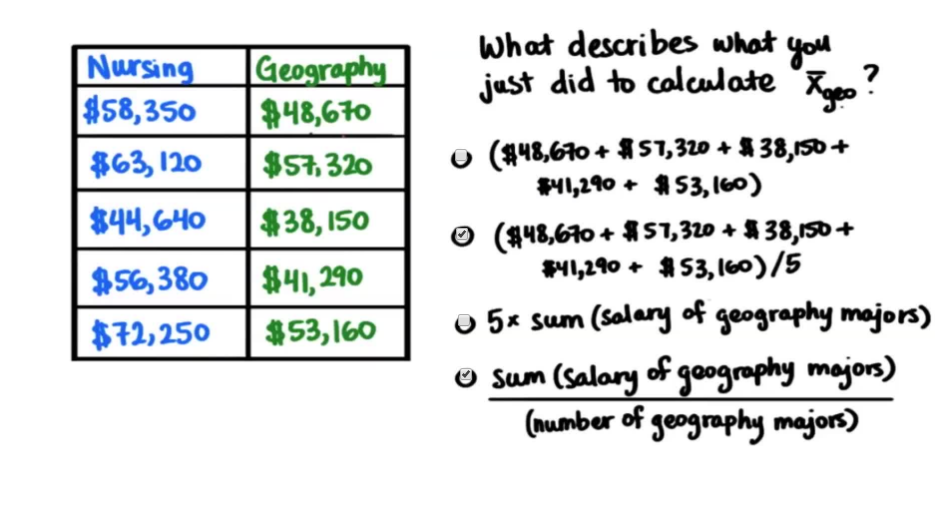 Nursing Geography
$58,350 $48,670
$63,120 $57,320
$44,640 $38,150
$56,380 $41,290
$72,250 $53,160
What describes what you
just did to calculate x̄geo?
($48,670 + $57,320 + $38,150 +
$41,290 + $53,160)
($48,670 + $57,320 + $38,150 +
$41,290 + $53,160) /5
5 x sum (salary of geography majors)
sum (salary of geography majors)
(number of geography majors)